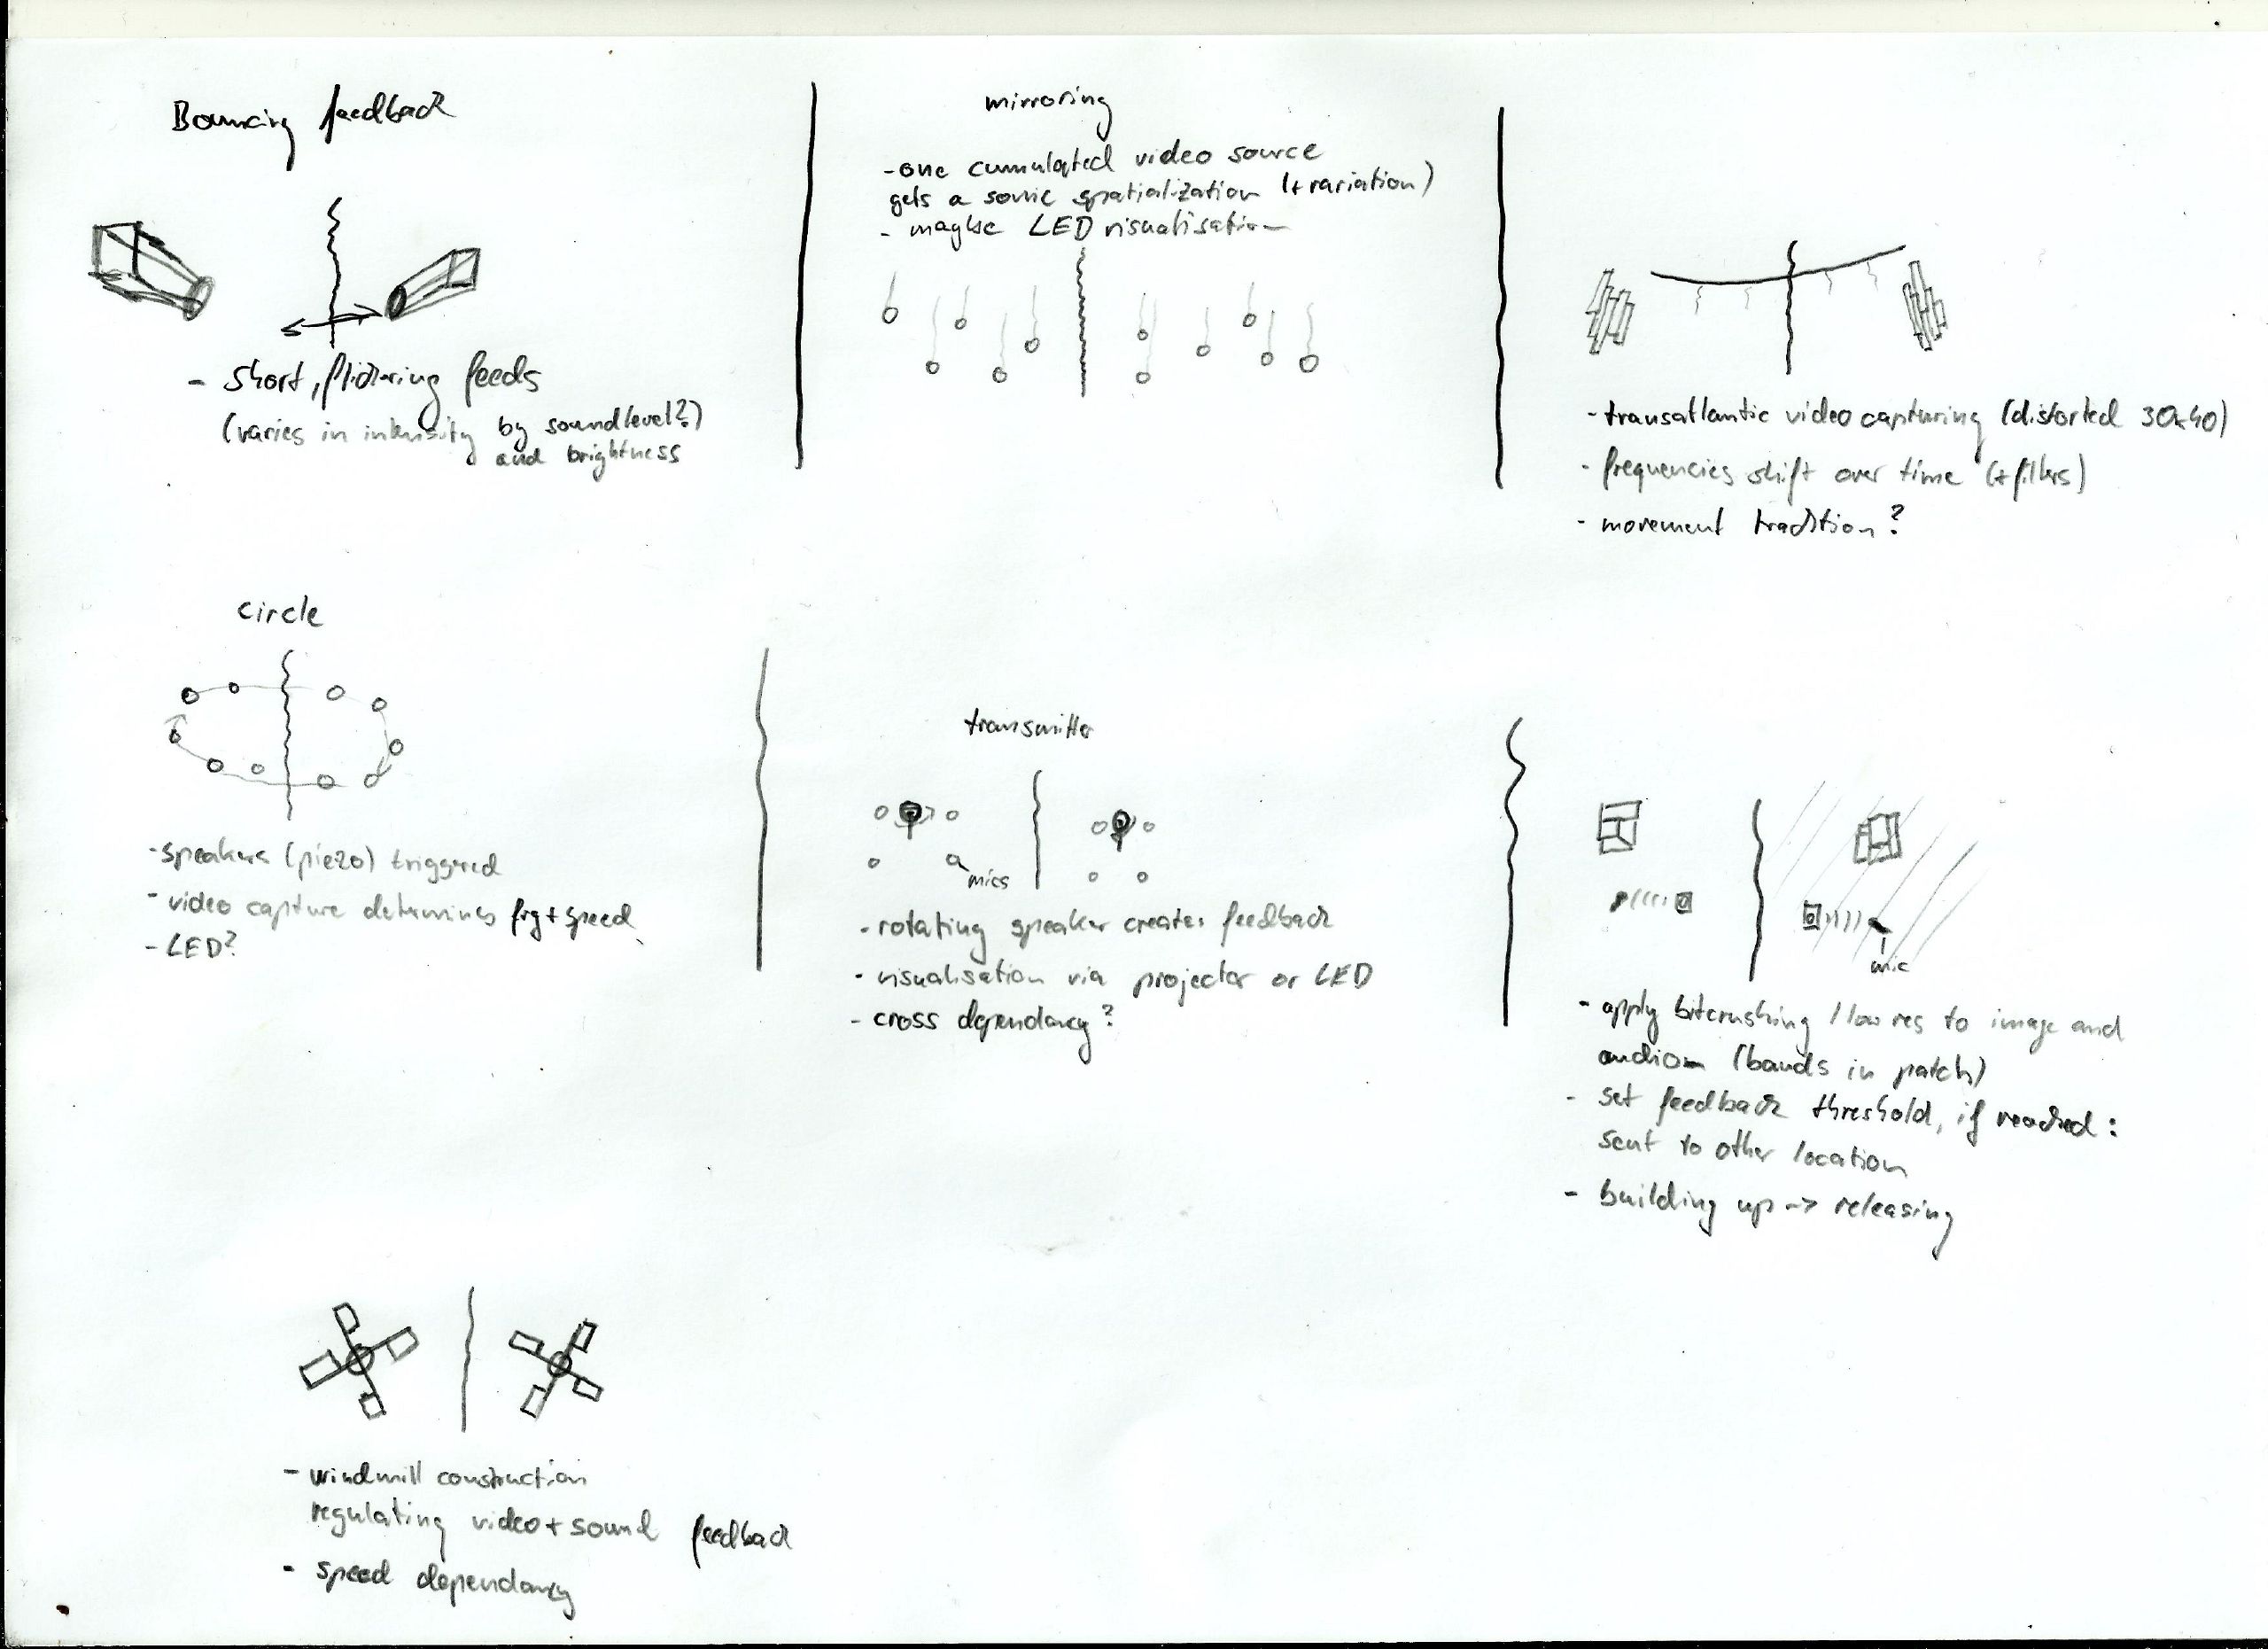 Bouncing feedback
- short, flickering feeds
(varies in intensity by soundlevel?)
and brightness
mirroring
- one cumulated video source
gets a sonic spatialization (+ variation)
- maybe LED visualisation
- transatlantic video capturing (distorted 30x40)
- frequencies shift over time (+ filters)
- movement tradition?
circle
- speakers (piezo) triggered
- video capture determines frq + speed
- LED?
transmitter
mics
- rotating speaker creates feedback
- visualisation via projector or LED
- cross dependancy?
mic
- apply bitcrushing / low res to image and
audio (bands in patch)
- set feedback threshold, if reached:
sent to other location
- building up -> releasing
- windmill construction
regulating video + sound feedback
- speed dependancy